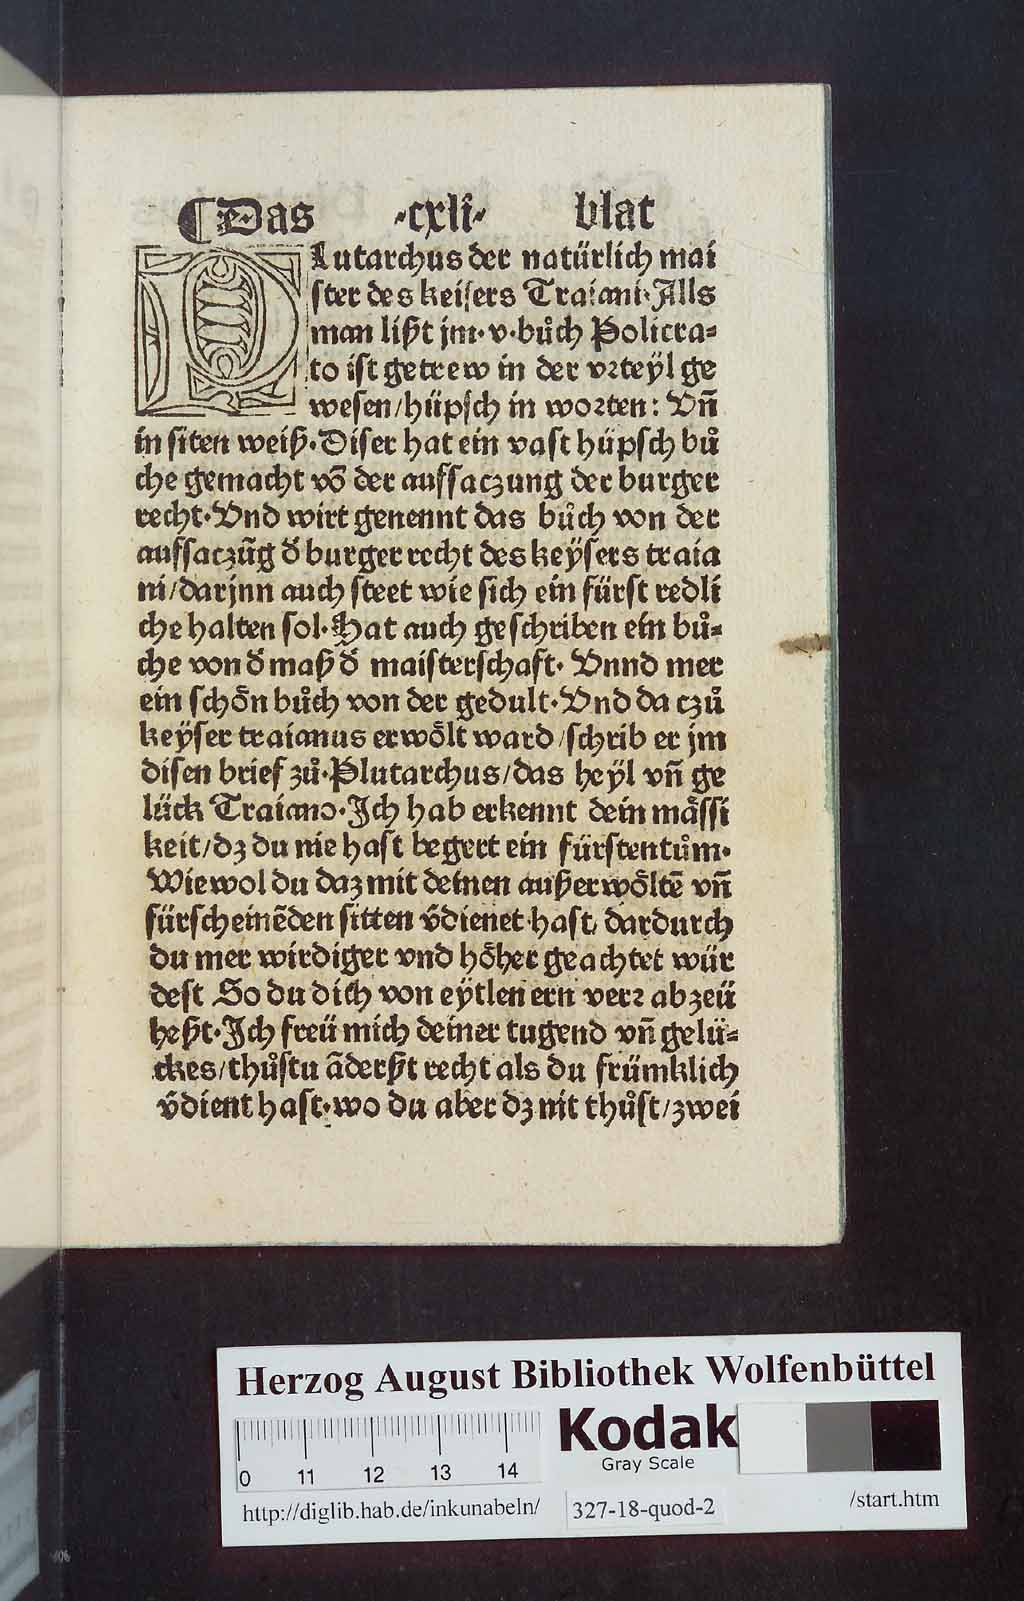 ¶ Das ·cxli· blat
PLutarchus der natürlich mai
ster des keisers Traiani· Alls
man lißt jm· v· bůch Policra⸗
to ist getrew in der vꝛteyl ge
wesen/hüpsch in woꝛten: Vn̄
in siten weiß· Diser hat ein vast hüpsch bů
che gemacht vō der auffsaczung der burger
recht· Vnd wirt genennt das bůch von der
auffsaczūg d̕ burger recht des keÿsers traia
ni/darjnn auch steet wie sich ein fürst redli
che halten sol· Hat auch geschriben ein bů⸗
che von d̕ maß d̕ maisterschaft· Vnnd mer
ein schoͤn bůch von der gedult· Vnd da czů
keÿser traianus erwoͤlt ward/schrib er jm
disen brief zů· Plutarchus/das heÿl vn̄ ge
lück Traiano· Ich hab erkennt dein maͤssi
keit/dz du nie hast begert ein fürstentům·
Wiewol du daz mit deinen außerwoͤltē vn̄
fürscheinēden sitten v̄dienet hast/ dardurch
du mer wirdiger vnd hoͤher geachtet wür
dest So du dich von eÿtlen ern verꝛ abzeü
heßt· Ich freü mich deiner tugend vn̄ gelü⸗
ckes/thůstu āderßt recht als du frümklich
v̄dient hast· wo du aber dz nit thůst/zwei
Herzog August Bibliothek Wolfenbüttel
Kodak
Gray Scale
0 11 12 13 14
http://diglib.hab.de/inkunabeln/ 327-18-quod-2 /start.htm